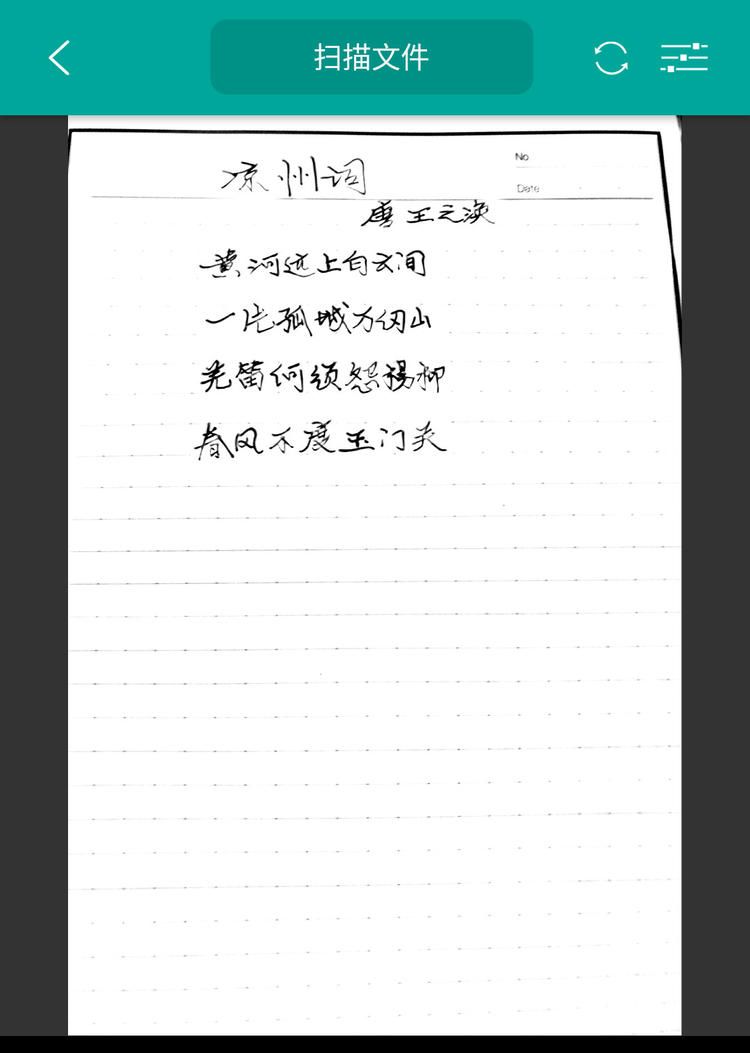 扫描文件
No
凉州词
Date
唐 王之涣
黄河远上白云间
一片孤城万仞山
羌笛何须怨杨柳
春风不度玉门关